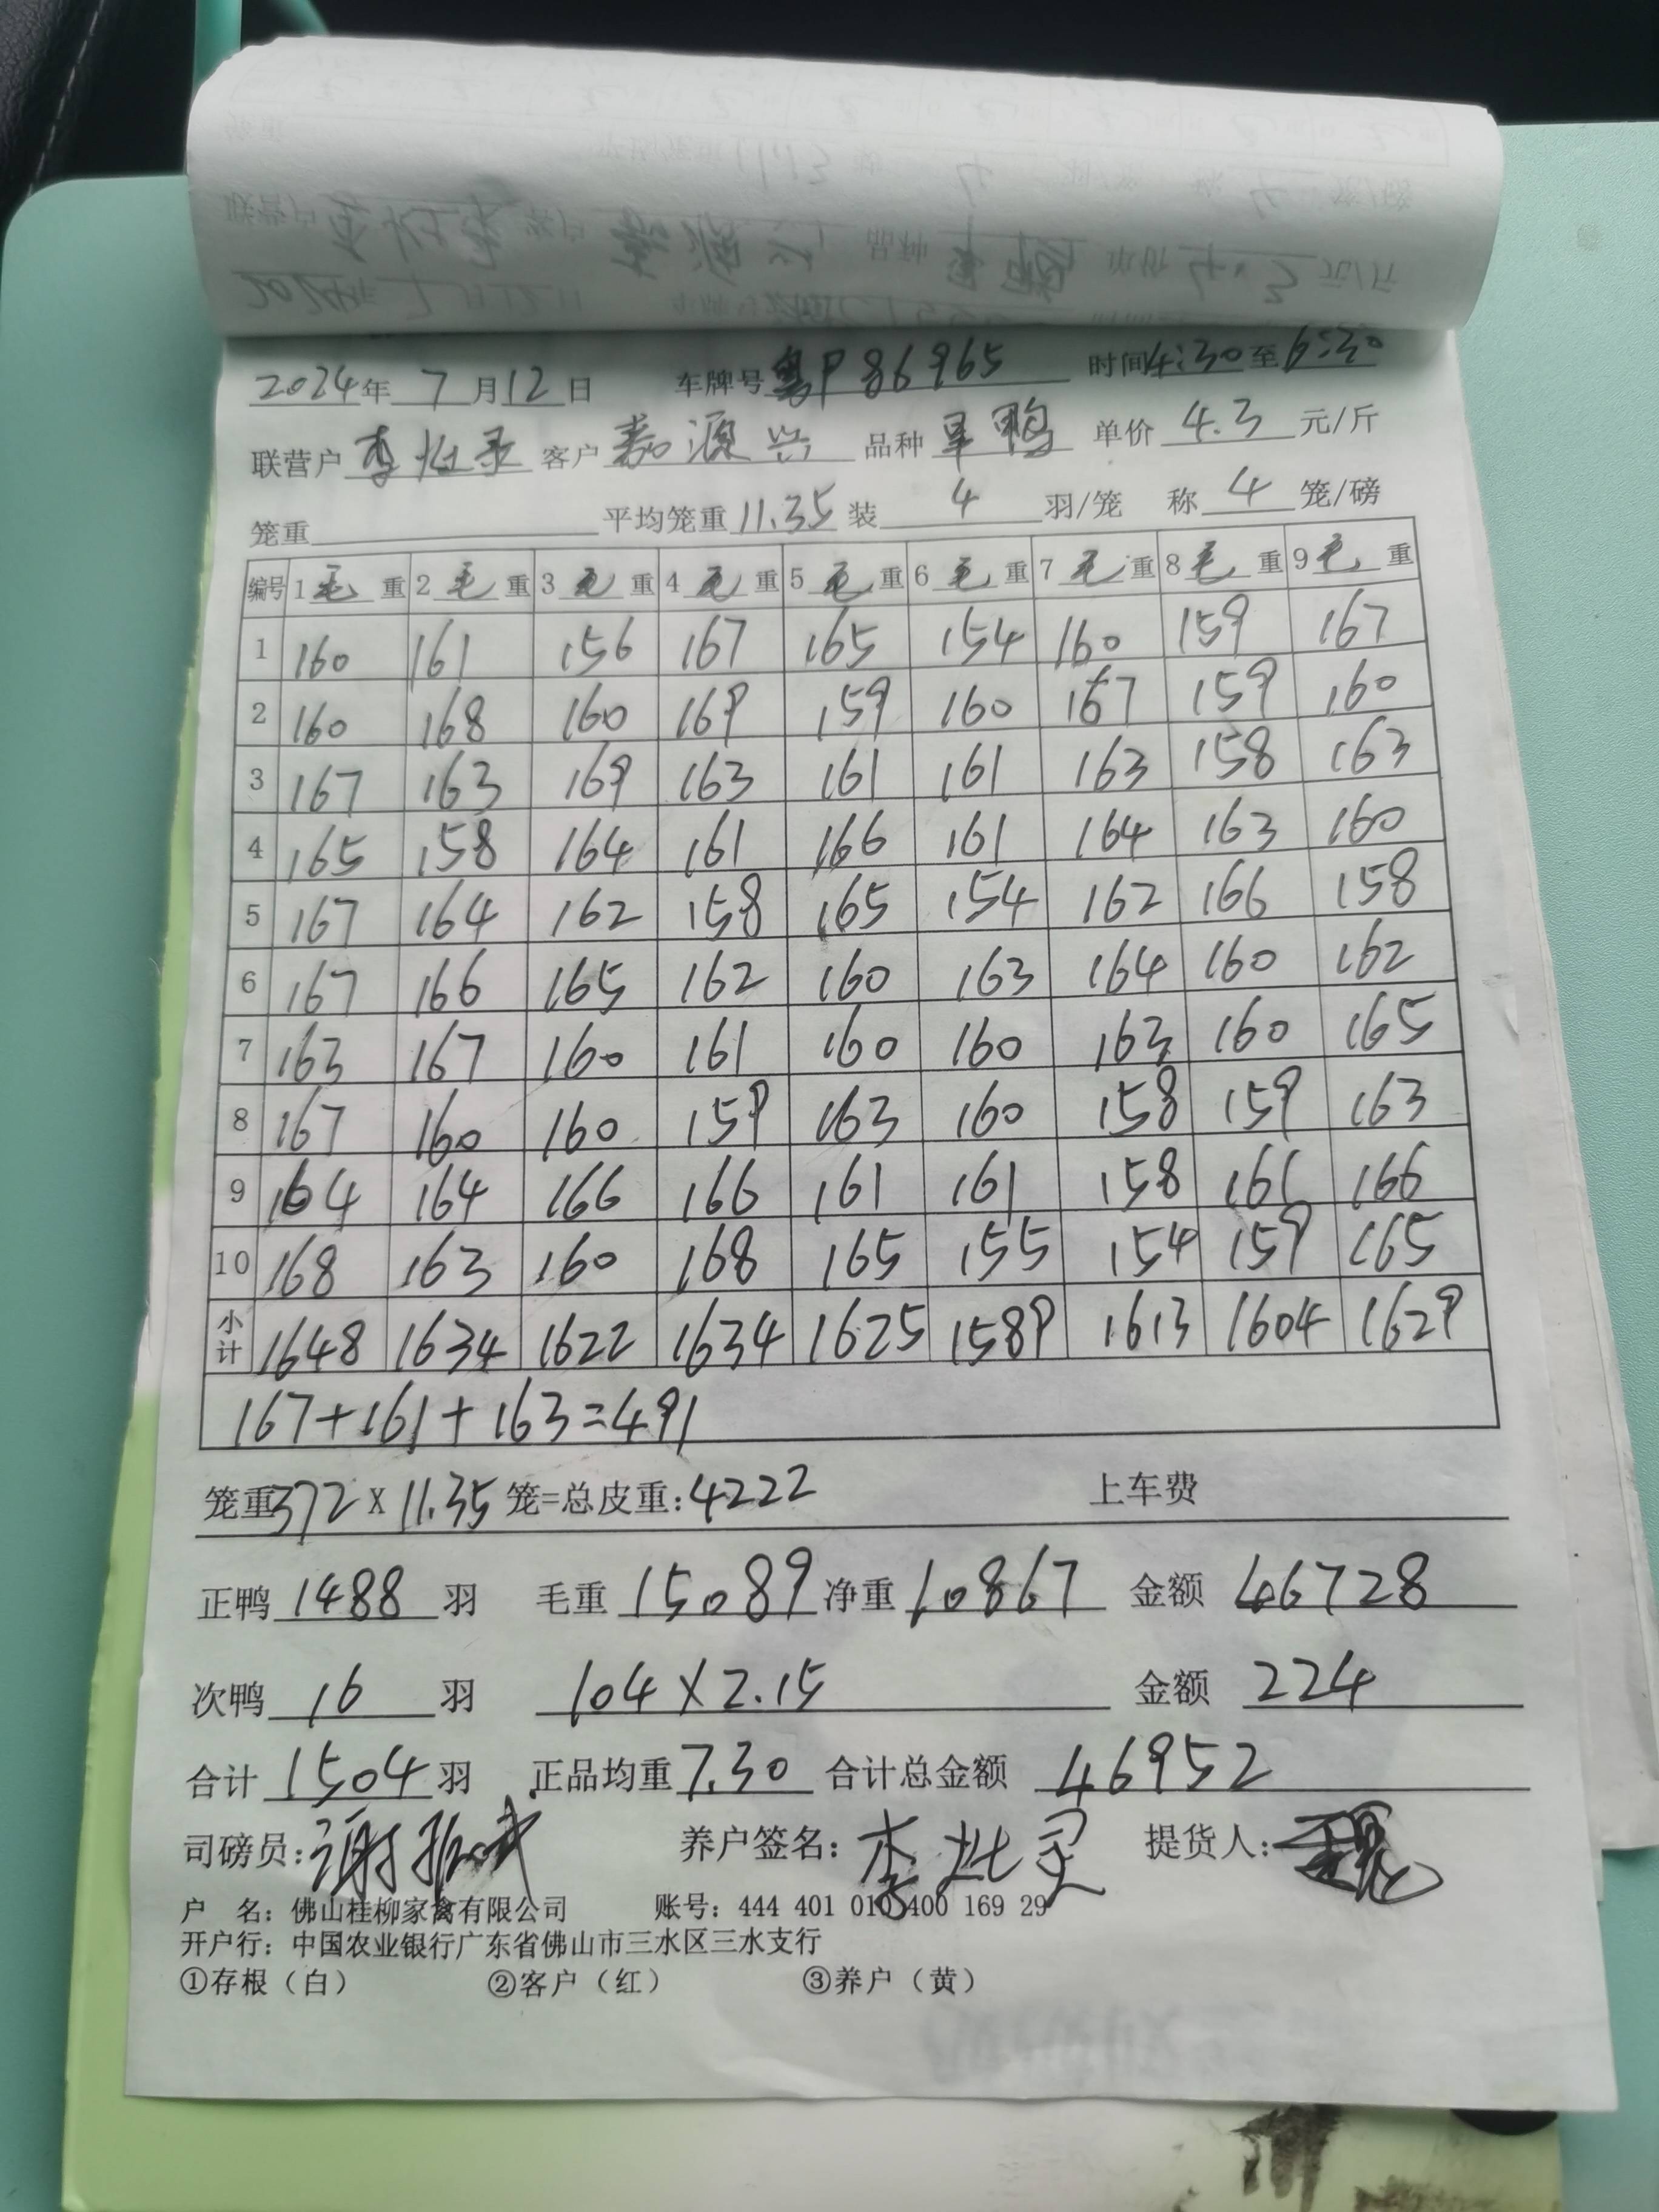 2024年 7 月 12 日 车牌号 粤P86965 时间 4:30 至 6:30
联营户 李灶灵 客户 嘉源兴 品种 旱鸭 单价 4.3 元/斤
笼重 平均笼重 11.35 装 4 羽/笼 称 4 笼/磅
编号 1 毛 重 2 毛 重 3 毛 重 4 毛 重 5 毛 重 6 毛 重 7 毛 重 8 毛 重 9 毛 重
1 160 161 156 167 165 154 160 159 167
2 160 168 160 169 159 160 167 159 160
3 167 163 169 163 161 161 163 158 163
4 165 158 164 161 166 161 164 163 160
5 167 164 162 158 165 154 162 166 158
6 167 166 165 162 160 163 164 160 162
7 163 167 160 161 160 160 163 160 165
8 167 160 160 159 163 160 158 159 163
9 164 164 166 166 161 161 158 161 166
10 168 163 160 168 165 155 154 159 165
小计 1648 1634 1622 1634 1625 1589 1613 1604 1629
167+161+163=491
笼重 372 X 11.35 笼=总皮重: 4222 上车费
正鸭 1488 羽 毛重 15089 净重 10867 金额 46728
次鸭 16 羽 104 X 2.15 金额 224
合计 1504 羽 正品均重 7.30 合计总金额 46952
司磅员: 养户签名: 李灶灵 提货人:
户 名: 佛山桂柳家禽有限公司 账号: 444 401 010 400 169 29
开户行: 中国农业银行广东省佛山市三水区三水支行
①存根（白） ②客户（红） ③养户（黄）